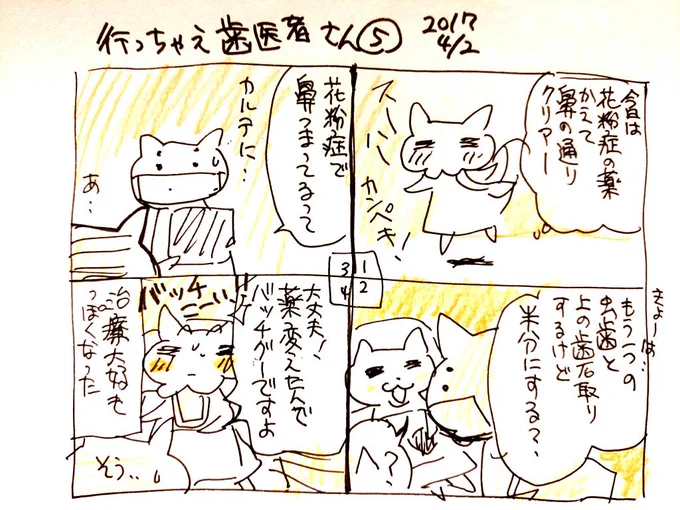 行っちゃえ歯医者さん⑤
2017
4/2
今日は
花粉症の薬
かえて
鼻の通り
クリアー
スーハー
カンペキ!
1
2
3
4
きょーは…
もう一つの
虫歯と
上の歯石取り
するけど
半分にする?
へ?
花粉症で
鼻つまってるって
カルテに…
あ…
大丈夫!
薬変えたんで
バッチグーですよ
バッチ
こーい
治療大好き
っぽくなった
そう…